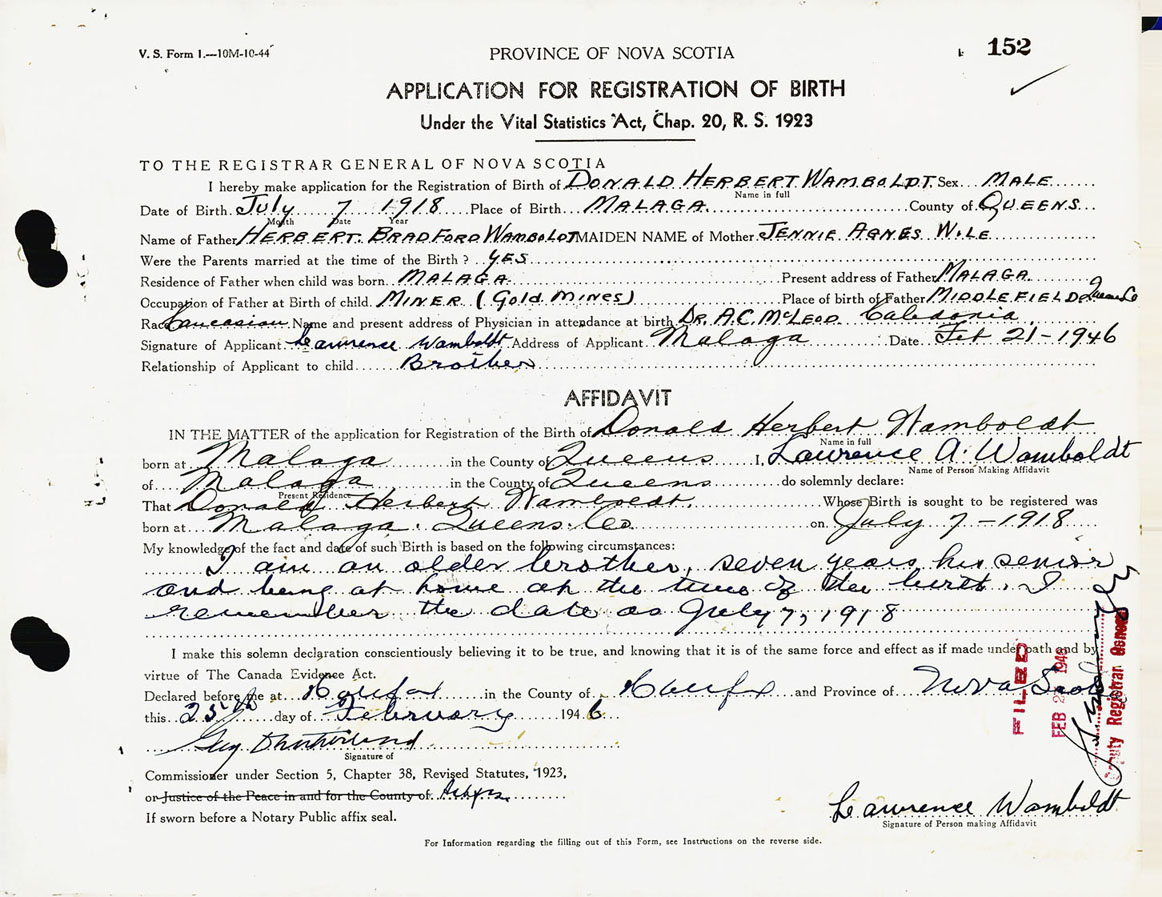 V. S. Form 1.—10M-10-44
PROVINCE OF NOVA SCOTIA
152
APPLICATION FOR REGISTRATION OF BIRTH
Under the Vital Statistics Act, Chap. 20, R. S. 1923
TO THE REGISTRAR GENERAL OF NOVA SCOTIA
I hereby make application for the Registration of Birth of DONALD HERBERT WAMBOLDT Sex MALE
Name in full
Date of Birth July 7 1918 Place of Birth MALAGA County of QUEENS
Month Date Year
Name of Father HERBERT BRADFORD WAMBOLDT MAIDEN NAME of Mother JENNIE AGNES WILE
Were the Parents married at the time of the Birth? YES
Residence of Father when child was born MALAGA Present address of Father MALAGA
Occupation of Father at Birth of child MINER (Gold Mines) Place of birth of Father MIDDLEFIELD Queens Co
Race Caucasian Name and present address of Physician in attendance at birth DR. A.C. McLEOD Caledonia
Signature of Applicant Lawrence Wamboldt Address of Applicant Malaga Date Feb 21-1946
Relationship of Applicant to child Brother
AFFIDAVIT
IN THE MATTER of the application for Registration of the Birth of Donald Herbert Wamboldt
Name in full
born at Malaga in the County of Queens I, Lawrence A. Wamboldt
Name of Person Making Affidavit
of Malaga in the County of Queens do solemnly declare:
Present Residence
That Donald Herbert Wamboldt. Whose Birth is sought to be registered was
born at Malaga. Queens. Co on July 7-1918
My knowledge of the fact and date of such Birth is based on the following circumstances:
I am an older brother, seven years his senior
and being at home at the time of the birth. I
remember the date as July 7, 1918
I make this solemn declaration conscientiously believing it to be true, and knowing that it is of the same force and effect as if made under oath and by
virtue of The Canada Evidence Act.
Declared before me at Halifax in the County of Halifax and Province of Nova Scotia
this 25th day of February 1946
Signature of
Commissioner under Section 5, Chapter 38, Revised Statutes, 1923,
or Justice of the Peace in and for the County of
If sworn before a Notary Public affix seal.
FILED
FEB 1946
Deputy Registrar General
Lawrence Wamboldt
Signature of Person making Affidavit
For Information regarding the filling out of this Form, see Instructions on the reverse side.